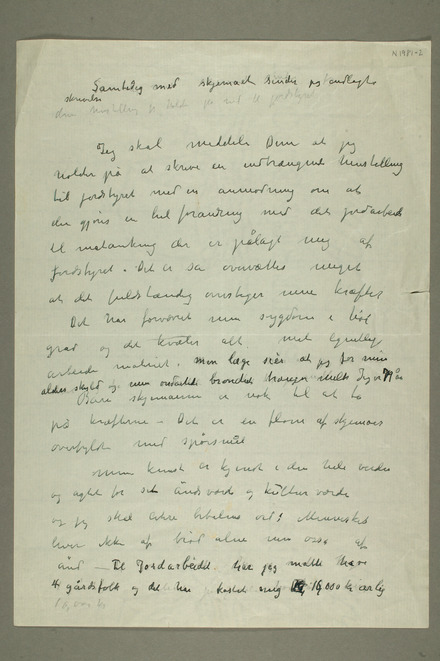 N 1981-2
Samtidig med skjemaet sender jeg vedlagte
skrivelse
Jeg skal meddele Dem at jeg
holder på at skrive en indtrængende henstilling
til jordstyret med en anmodning om at
der gjøres en hel forandring med det jordarbeide
til matauking der er pålagt mig af
jordstyret. Det er så overvættes meget
at det fuldstændig overstiger mine kræfter
Det har forværret min sygdom i høi
grad og det kvæler alt mit
arbeide. Min læge sier at jeg for min
alders skyld og min bronchit trænger hvile. Jeg er 79 år
Bare skjemaerne er nok til at ta
på kræfterne – Det er en flom af skjemaer
overfyldt med spørsmål
min kunst er kjendt i den hele verden
og agtet for sit åndsværd og kulturværde
og jeg skal citere bibelens ord: Mennesket
lever ikke af brød alene men også af
ånd – Til Jordarbeidet har jeg måttet have
4 gårdsfolk og det har kostet mig 16,000 kr årlig